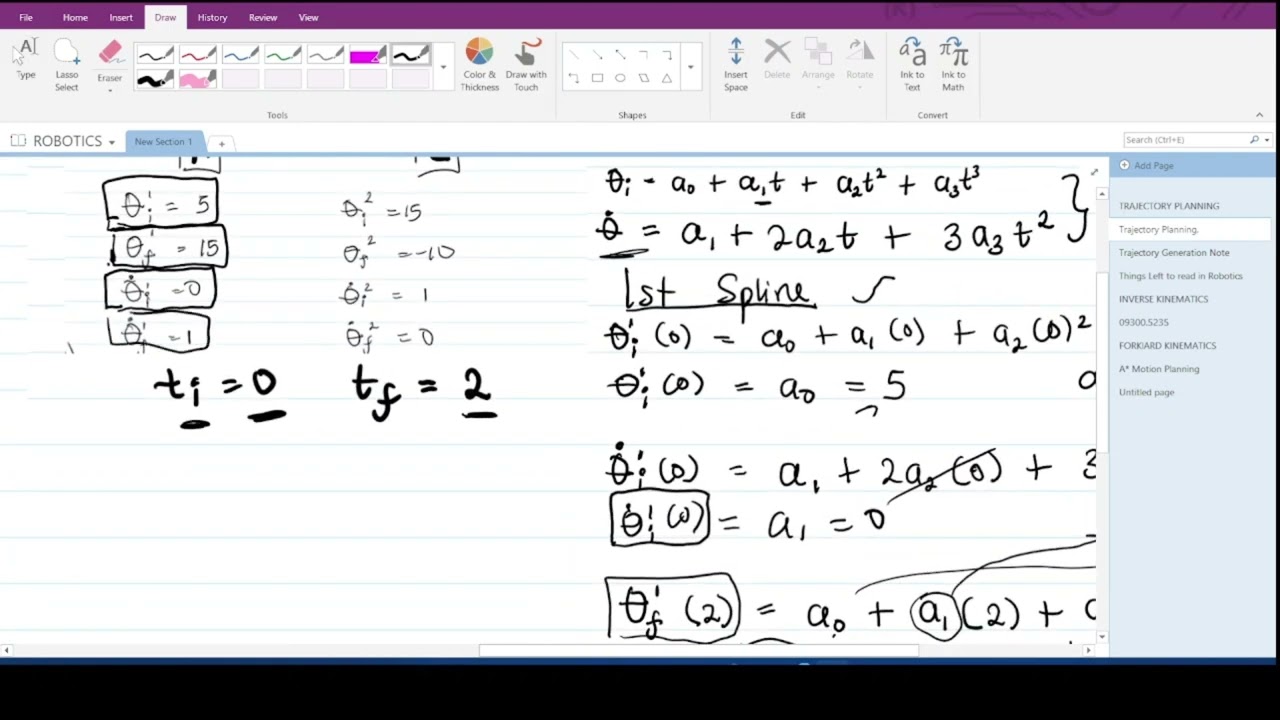 File Home Insert Draw History Review View
Type
Lasso Select
Eraser
Color & Thickness
Draw with Touch
Insert Space
Delete
Arrange
Rotate
Ink to Text
Ink to Math
Tools
Shapes
Edit
Convert
ROBOTICS
New Section 1
Search (Ctrl+E)
Add Page
TRAJECTORY PLANNING
Trajectory Planning.
Trajectory Generation Note
Things Left to read in Robotics
INVERSE KINEMATICS
09300.5235
FORKIARD KINEMATICS
A* Motion Planning
Untitled page
θᵢ¹ = 5
θf¹ = 15
θ̇ᵢ¹ = 0
θ̇f¹ = 1
θᵢ² = 15
θf² = -10
θ̇ᵢ² = 1
θ̇f² = 0
tᵢ = 0 tf = 2
θᵢ = a₀ + a₁t + a₂t² + a₃t³
θ̇ = a₁ + 2a₂t + 3a₃t²
1st Spline
θᵢ¹(0) = a₀ + a₁(0) + a₂(0)²
θᵢ¹(0) = a₀ = 5
θ̇ᵢ¹(0) = a₁ + 2a₂(0) + 3
θ̇ᵢ¹(0) = a₁ = 0
θf¹(2) = a₀ + a₁(2) +